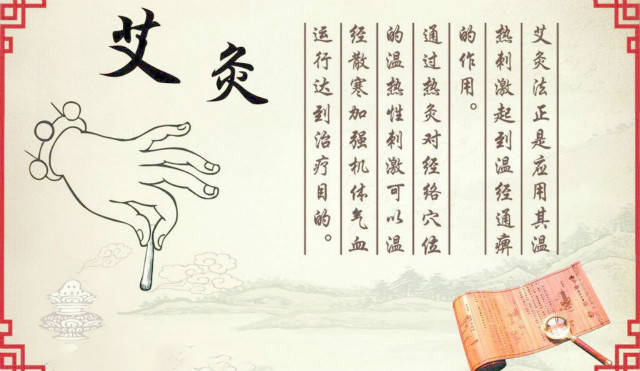 艾灸
艾灸法正是应用其温
热刺激起到温经通痹
的作用。
通过热灸对经络穴位
的温热性刺激可以温
经散寒加强机体气血
运行达到治疗目的。